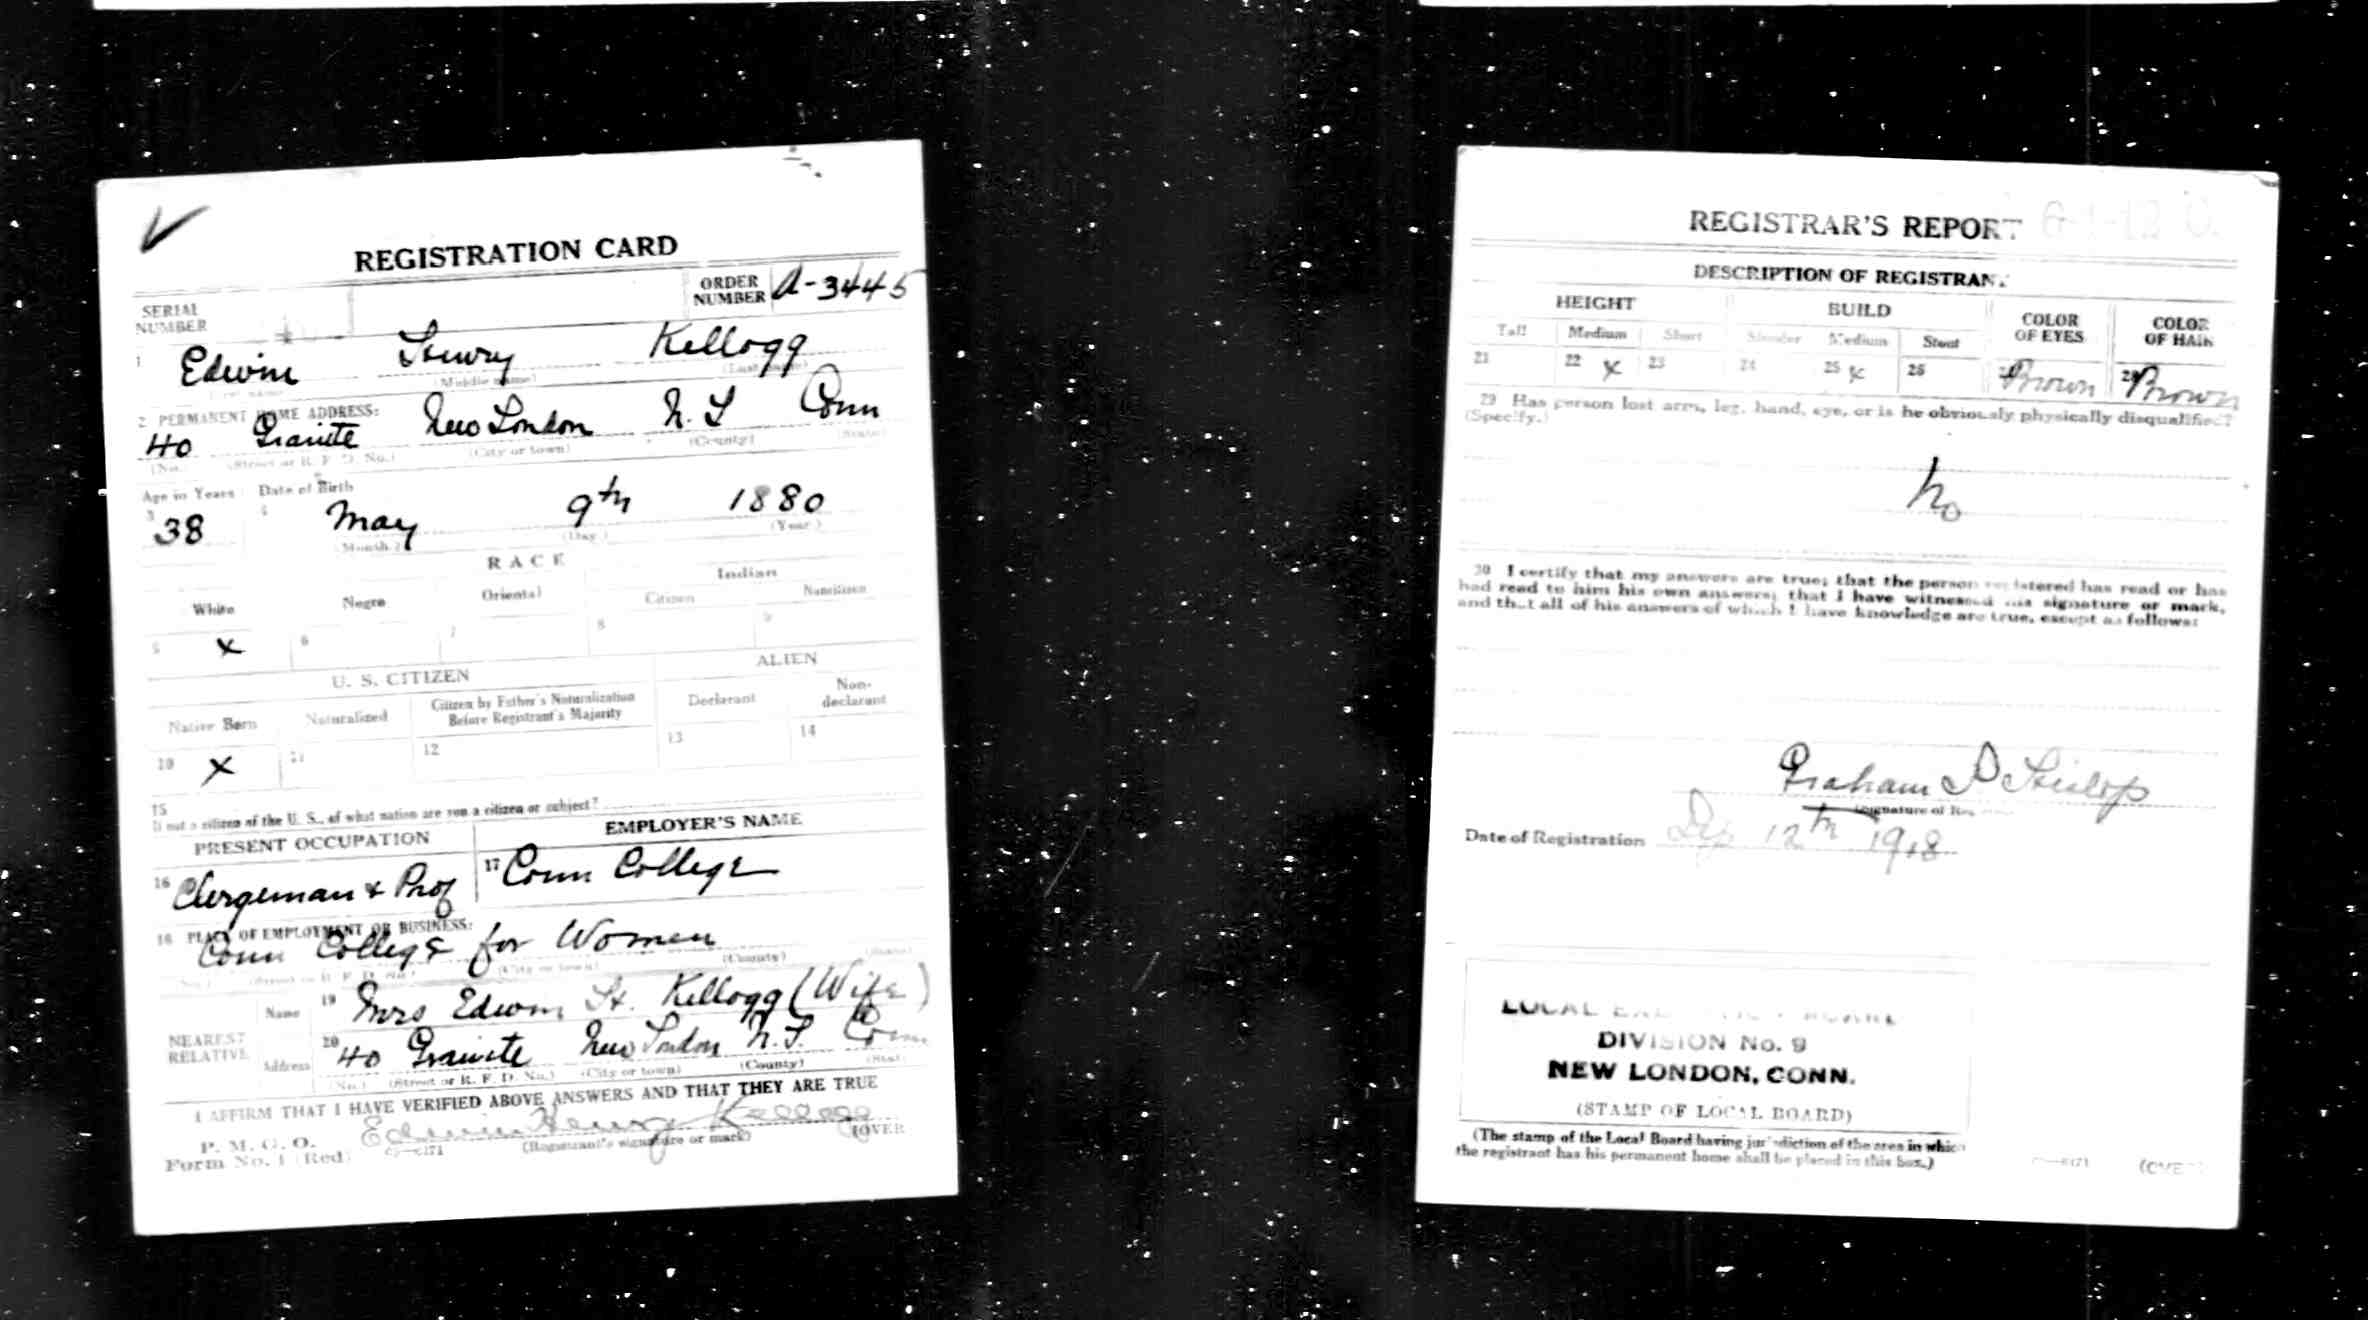 REGISTRATION CARD
SERIAL NUMBER
ORDER NUMBER A-3445
1 Edwin Henry Kellogg
(Middle name) (Last name)
2 PERMANENT HOME ADDRESS:
40 Granite New London N. L Conn
(No.) (Street or R. F. D. No.) (City or town) (County) (State)
Age in Years Date of Birth
3 38 4 May 9th 1880
(Month.) (Day.) (Year.)
RACE
White Negro Oriental Indian
Citizen Noncitizen
5 X 6 7 8 9
U. S. CITIZEN ALIEN
Native Born Naturalized Citizen by Father's Naturalization Before Registrant's Majority Declarant Non-declarant
10 X 11 12 13 14
15
If not a citizen of the U. S., of what nation are you a citizen or subject?
PRESENT OCCUPATION EMPLOYER'S NAME
16 Clergeman & Prof 17 Conn College
18 PLACE OF EMPLOYMENT OR BUSINESS:
Conn College for Women
(No.) (Street or R. F. D. No.) (City or town) (County) (State)
NEAREST RELATIVE
Name 19 Mrs Edwin H. Kellogg (Wife)
Address 20 40 Granite New London N. L. Conn
(No.) (Street or R. F. D. No.) (City or town) (County) (State)
I AFFIRM THAT I HAVE VERIFIED ABOVE ANSWERS AND THAT THEY ARE TRUE
P. M. G. O.
Form No. 1 (Red)
Edwin Henry Kellogg
(Registrant's signature or mark) (OVER
REGISTRAR'S REPORT
DESCRIPTION OF REGISTRANT
HEIGHT BUILD COLOR OF EYES COLOR OF HAIR
Tall Medium Short Slender Medium Stout
21 22 X 23 24 25 X 26 Brown Brown
29 Has person lost arm, leg, hand, eye, or is he obviously physically disqualified?
(Specify.)
No
30 I certify that my answers are true; that the person registered has read or has
had read to him his own answers; that I have witnessed his signature or mark,
and that all of his answers of which I have knowledge are true, except as follows:
Graham D Hislop
Signature of
Date of Registration 12th 1918
LOCAL BOARD
DIVISION No. 9
NEW LONDON, CONN.
(STAMP OF LOCAL BOARD)
(The stamp of the Local Board having jurisdiction of the area in which
the registrant has his permanent home shall be placed in this box.)
(OVER)